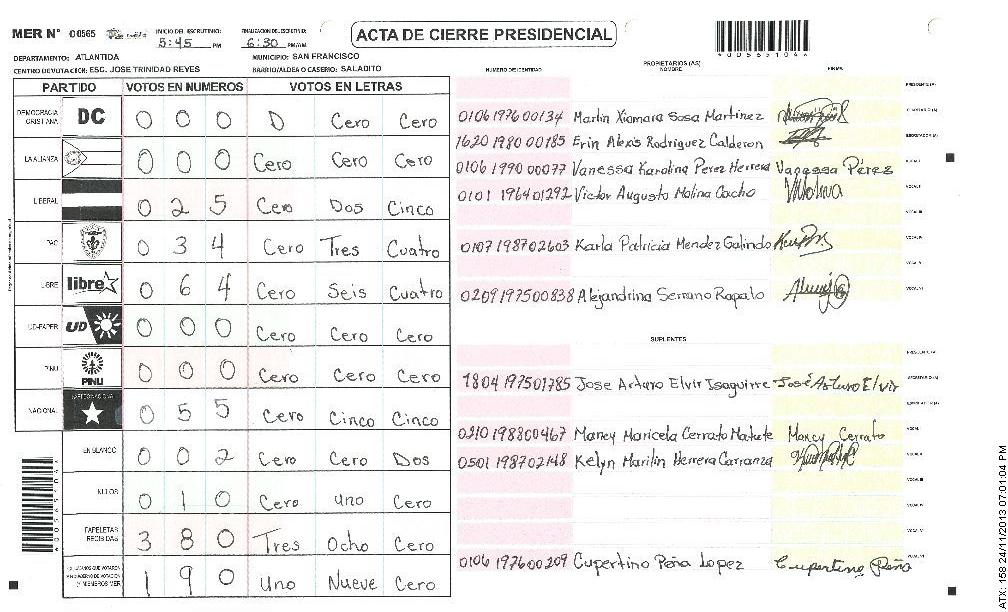 MER N° 00565 INICIO DEL ESCRUTINIO: 5:45 PM FINALIZACION DEL ESCRUTINIO: 6:30 PM/AM ACTA DE CIERRE PRESIDENCIAL
DEPARTAMENTO: ATLANTIDA MUNICIPIO: SAN FRANCISCO
CENTRO DE VOTACION: ESC. JOSE TRINIDAD REYES BARRIO/ALDEA O CASERIO: SALADITO
PARTIDO VOTOS EN NUMEROS VOTOS EN LETRAS
DEMOCRACIA CRISTIANA DC 0 0 0 D Cero Cero
LA ALIANZA 0 0 0 Cero Cero Cero
LIBERAL 0 2 5 Cero Dos Cinco
PAC 0 3 4 Cero Tres Cuatro
LIBRE libre 0 6 4 Cero Seis Cuatro
UD-FAPER UD 0 0 0 Cero Cero Cero
PINU PINU 0 0 0 Cero Cero Cero
NACIONAL 0 5 5 Cero Cinco Cinco
EN BLANCO 0 0 2 Cero Cero Dos
NULOS 0 1 0 Cero uno Cero
PAPELETAS RECIBIDAS 3 8 0 Tres Ocho Cero
1 9 0 Uno Nueve Cero
NUMERO DE IDENTIDAD PROPIETARIOS (AS) NOMBRE FIRMA
PRESIDENTE (A)
0106197600134 Marlin Xiomara Sosa Martinez SECRETARIO (A)
1620198000185 Erin Alexis Rodriguez Calderon ESCRUTADOR (A)
0106199000077 Vanessa Karolina Perez Herrera Vanessa Pérez VOCAL I
0101196401292 Victor Augusto Molina Cacho VMolina VOCAL II
VOCAL III
0107198702603 Karla Patricia Mendez Galindo VOCAL IV
VOCAL V
0209197500838 Alejandrina Serrano Rapalo VOCAL VI
SUPLENTES
PRESIDENTE (A)
1804197501785 Jose Arturo Elvir Isaguirre José Arturo Elvir SECRETARIO (A)
ESCRUTADOR (A)
0210198800467 Mancy Maricela Cerrato Matute Mancy Cerrato VOCAL I
0501198702148 Kelyn Marilin Herrera Carranza VOCAL II
VOCAL III
VOCAL IV
VOCAL V
0106197600209 Cupertino Peña Lopez Cupertino Peña VOCAL VI
ATX: 158 24/11/2013 07:01:04 PM